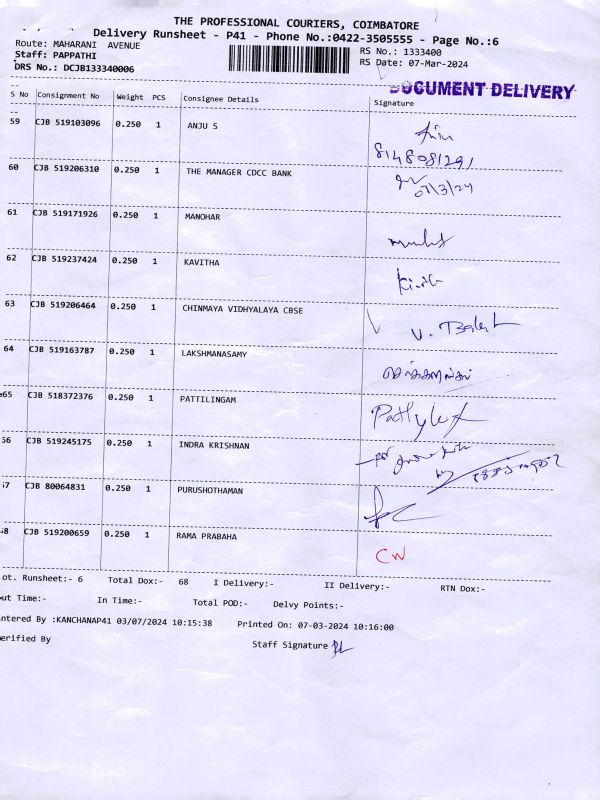 THE PROFESSIONAL COURIERS, COIMBATORE
Delivery Runsheet - P41 - Phone No.:0422-3505555 - Page No.:6
Route: MAHARANI AVENUE RS No.: 1333400
Staff: PAPPATHI RS Date: 07-Mar-2024
DRS No.: DCJB133340006
DOCUMENT DELIVERY
S No Consignment No Weight PCS Consignee Details Signature
59 CJB 519103096 0.250 1 ANJU S Anju
8148081291
60 CJB 519206310 0.250 1 THE MANAGER CDCC BANK
07/3/24
61 CJB 519171926 0.250 1 MANOHAR
62 CJB 519237424 0.250 1 KAVITHA
63 CJB 519206464 0.250 1 CHINMAYA VIDHYALAYA CBSE V.
64 CJB 519163787 0.250 1 LAKSHMANASAMY
65 CJB 518372376 0.250 1 PATTILINGAM
66 CJB 519245175 0.250 1 INDRA KRISHNAN
67 CJB 80064831 0.250 1 PURUSHOTHAMAN
68 CJB 519200659 0.250 1 RAMA PRABAHA CW
ot. Runsheet:- 6 Total Dox:- 68 I Delivery:- II Delivery:- RTN Dox:-
ut Time:- In Time:- Total POD:- Delvy Points:-
ntered By :KANCHANAP41 03/07/2024 10:15:38 Printed On: 07-03-2024 10:16:00
erified By Staff Signature